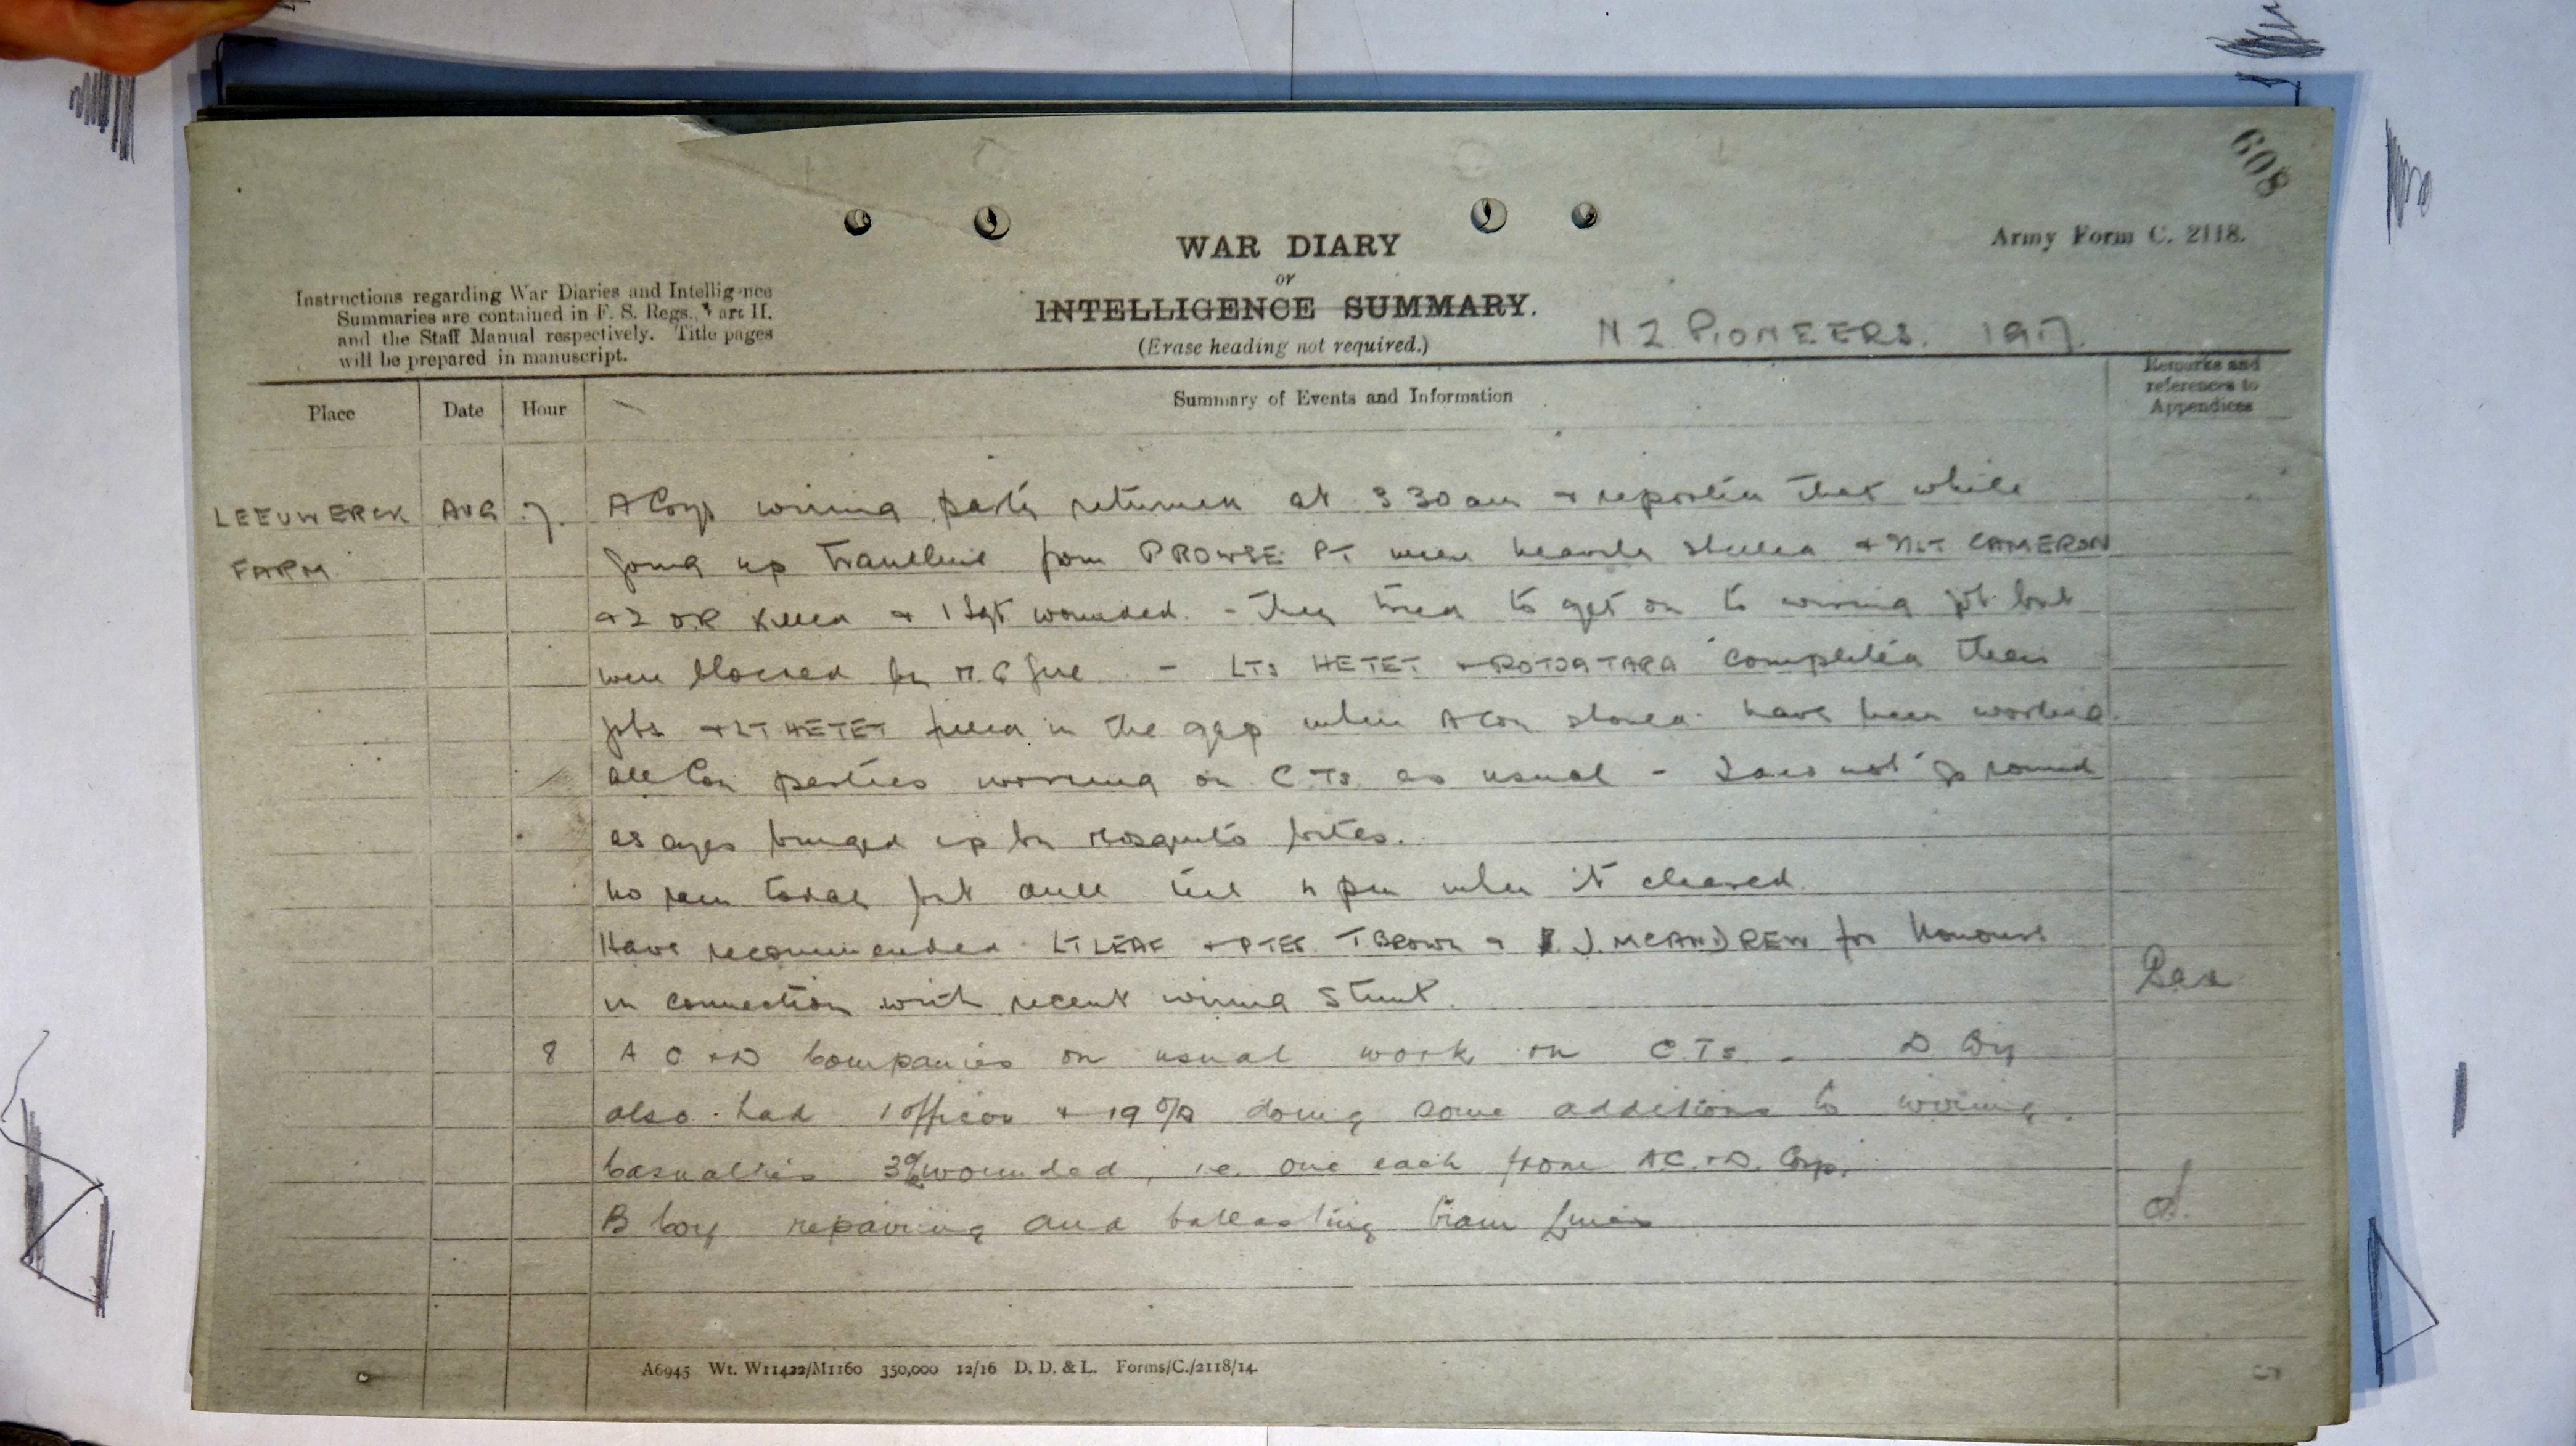 608
Army Form C. 2118.
WAR DIARY
or
INTELLIGENCE SUMMARY.
(Erase heading not required.)
N Z PIONEERS. 1917.
Instructions regarding War Diaries and Intelligence
Summaries are contained in F. S. Regs., Part II.
and the Staff Manual respectively. Title pages
will be prepared in manuscript.
Place Date Hour Summary of Events and Information Remarks and references to Appendices
LEEUWERCK AUG 7. A Coys wiring party returned at 3 30 am + reported that while
FARM going up tramline from PROWSE PT were heavily shelled + 2/LT CAMERON
+ 2 OR killed + 1 Sgt wounded. - They tried to get on to wiring job but
were blocked by M.G fire - LTs HETET + ROTOATARA completed their
jobs + LT HETET filled in the gap where A Coy should have been working
all Coy parties working on C.Ts. as usual - I did not go round
as eyes bunged up by mosquito bites.
No rain today but dull till 4 pm when it cleared.
Have recommended LT LEAF + PTES T BROWN + J. MCANDREW for honours
in connection with recent wiring stunt.
8 A C + D Companies on usual work on C.Ts. - D Coy
also had 1 officer + 19 O/R doing some additions to wiring.
Casualties 3 O/R wounded, i.e. one each from A C. + D. Coys.
B Coy repairing and ballasting tram lines
A6945 Wt. W11422/M1160 350,000 12/16 D. D. & L. Forms/C./2118/14.